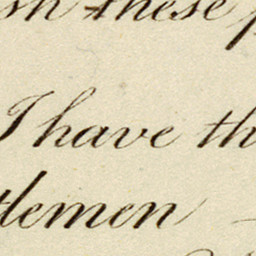 sh these p
I have th
tlemen